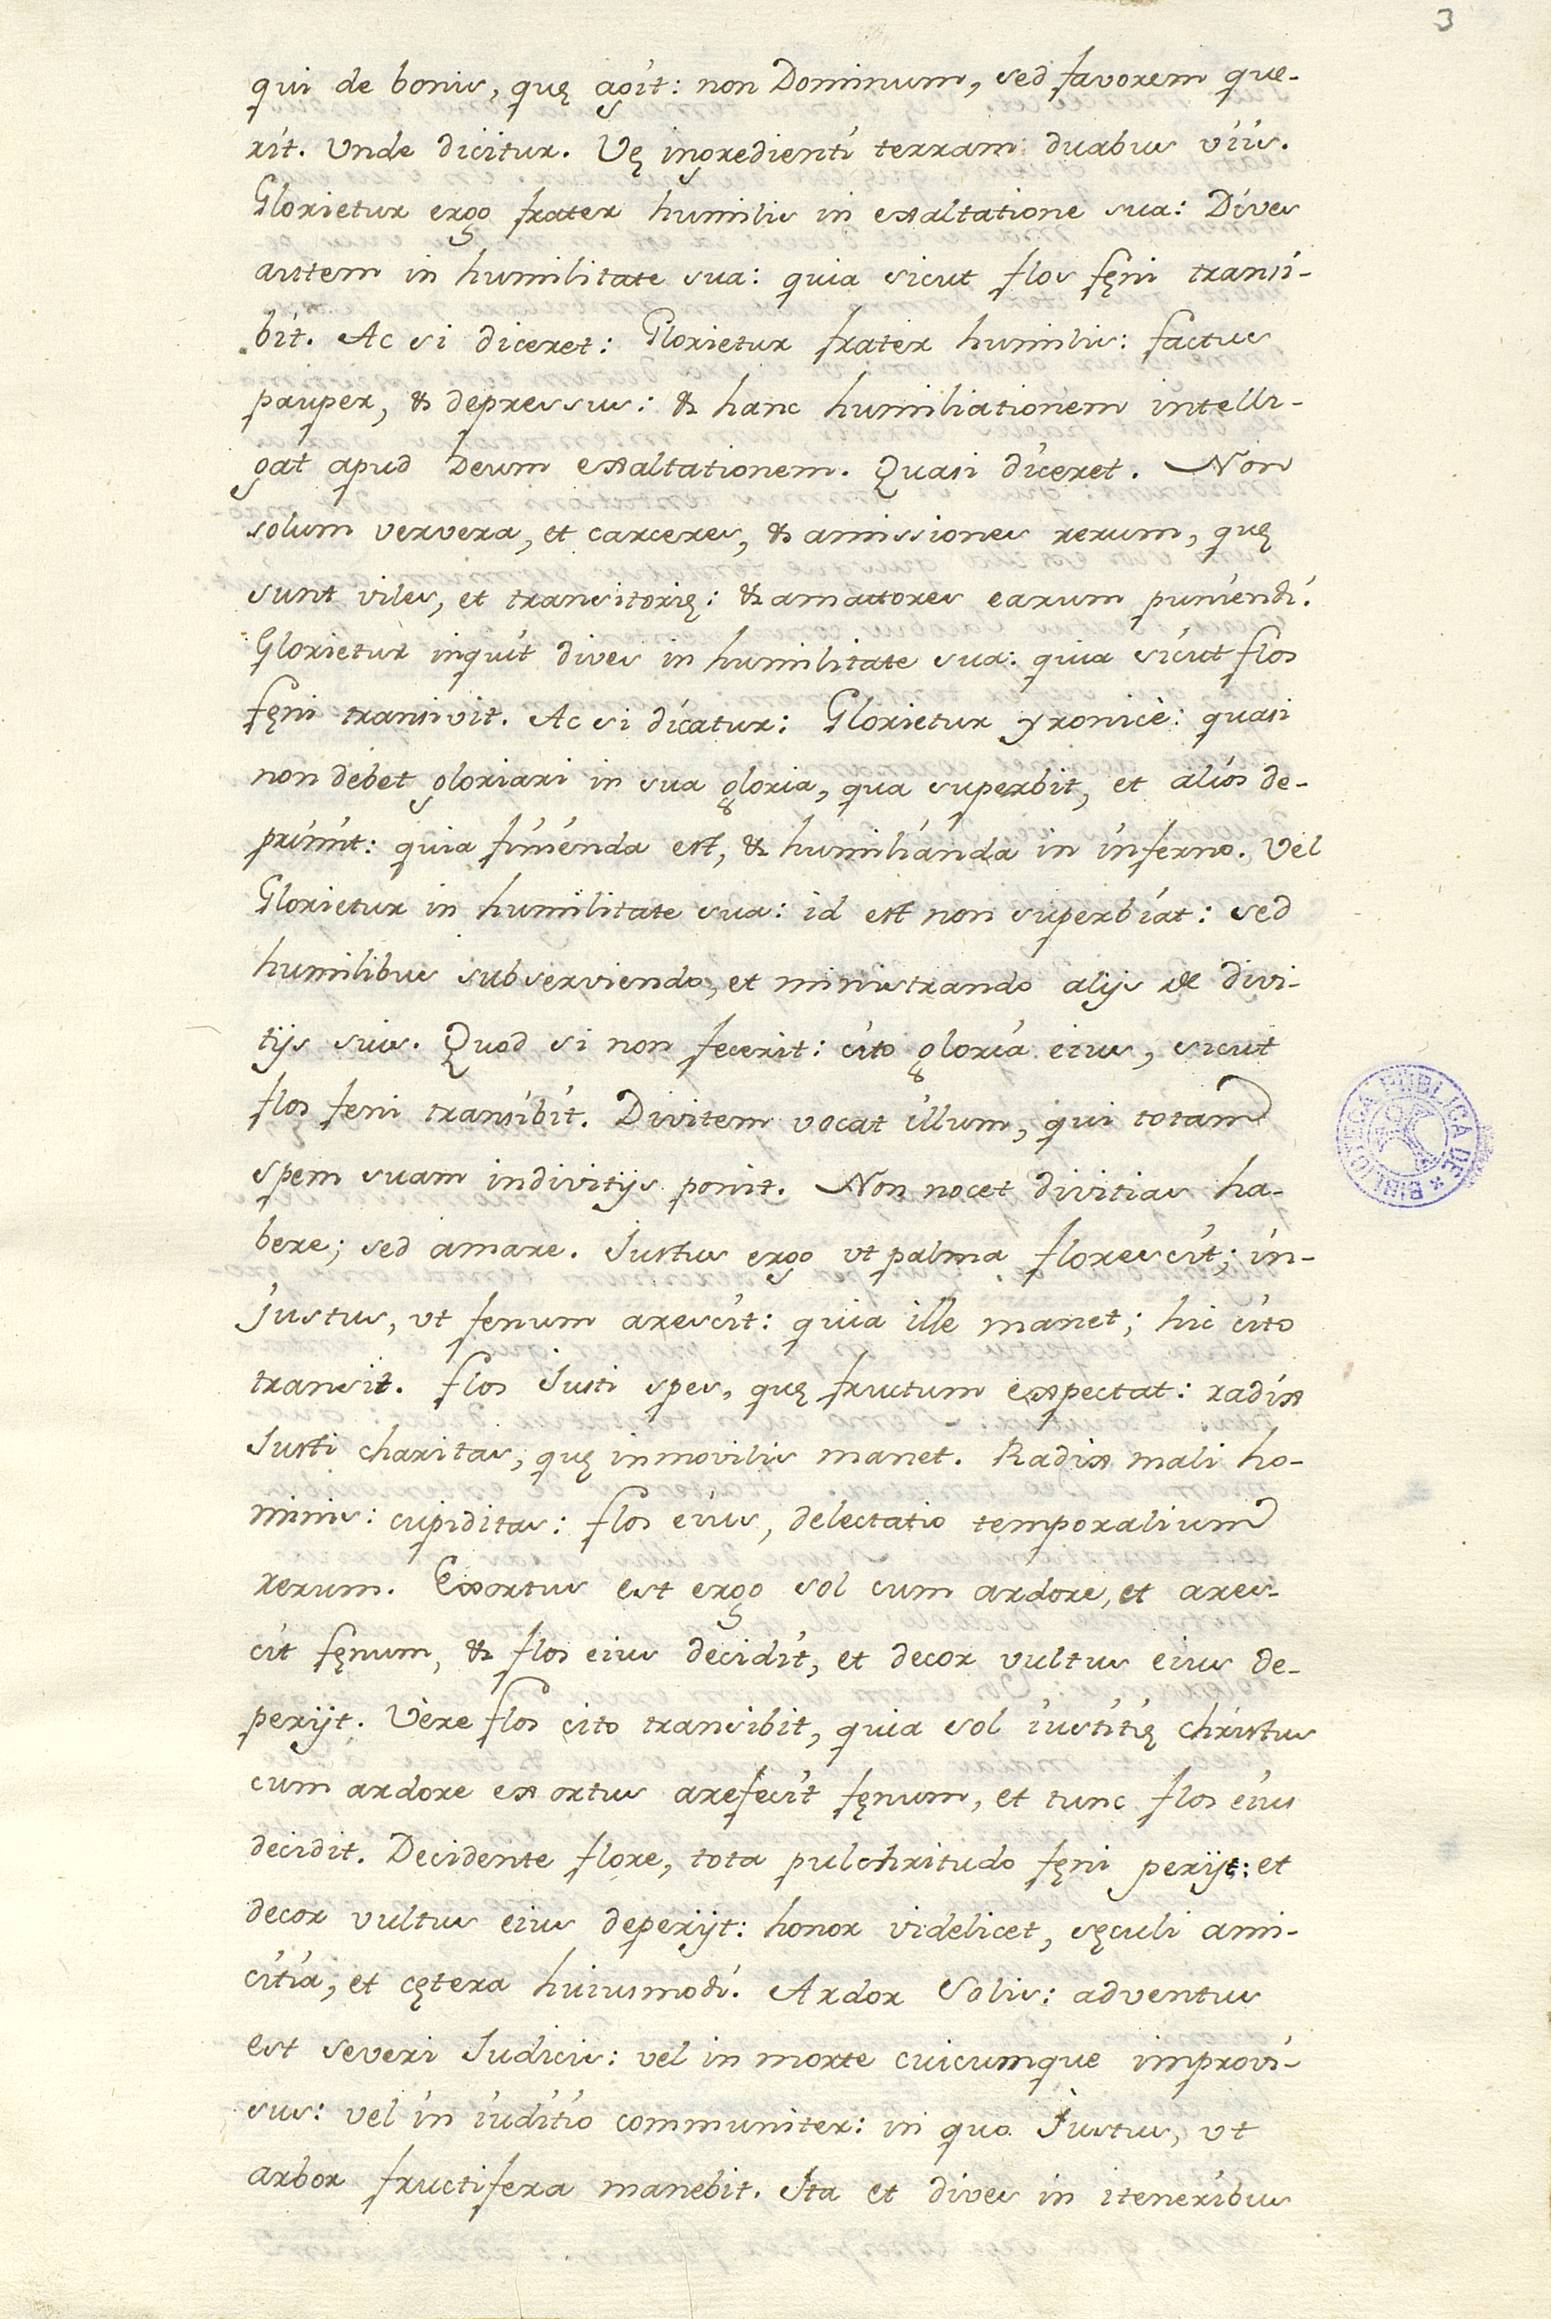 3
qui de bonis, quę agit: non Dominum, sed favorem que-
rit. Unde dicitur. Vę ingredienti terram duabus viis.
Glorietur ergo frater humilis in exaltatione sua: Dives
autem in humilitate sua: quia sicut flos fęni transi-
bit. Ac si diceret: Glorietur frater humilis: factus
pauper, & depressus: & hanc humiliationem intelli-
gat apud Deum exaltationem. Quasi diceret. Non
solum ververa, et carceres, & amissiones rerum, quę
sunt viles, et transitorię: & amattores earum puniendi.
Glorietur inquit dives in humilitate sua: quia sicut flos
fęni transivit. Ac si dicatur: Glorietur yronicè: quasi
non debet gloriari in sua gloria, qua superbit, et alios de-
primit: quia finienda est, & humilianda in inferno. Vel
Glorietur in humilitate sua: id est non superbiat: sed
humilibus subserviendo, et ministrando alijs de divi-
tijs suis. Quod si non fecerit: cito gloria eius, sicut
flos feni transibit. Divitem vocat illum, qui totam
spem suam in divitijs ponit. Non nocet divitias ha-
bere; sed amare. Iustus ergo ut palma florescit; in-
justus, ut fenum arescit: quia ille manet; hic cito
transit. flos Iusti spes, quę fructum expectat: radix
Iusti charitas, quę inmovilis manet. Radix mali ho-
minis: cupiditas: flos eius, delectatio temporalium
rerum. Exortus est ergo sol cum ardore, et ares-
cit fęnum, & flos eius decidit, et decor vultus eius de-
perijt. Vère flos cito transibit, quia sol iustitię christus
cum ardore exortus arefecit fęnum, et tunc flos eius
decidit. Decidente flore, tota pulchritudo fęni perijt: et
decor vultus eius deperijt: honor videlicet, sęculi ami-
citia, et cętera huiusmodi. Ardor Solis: adventus
est severi Iudicis: vel in morte cuicumque improvi-
sus: vel in iuditio communiter: in quo Iustus, ut
arbor fructifera manebit. Ita et dives in iteneribus
BIBLIOTECA PUBLICA DE